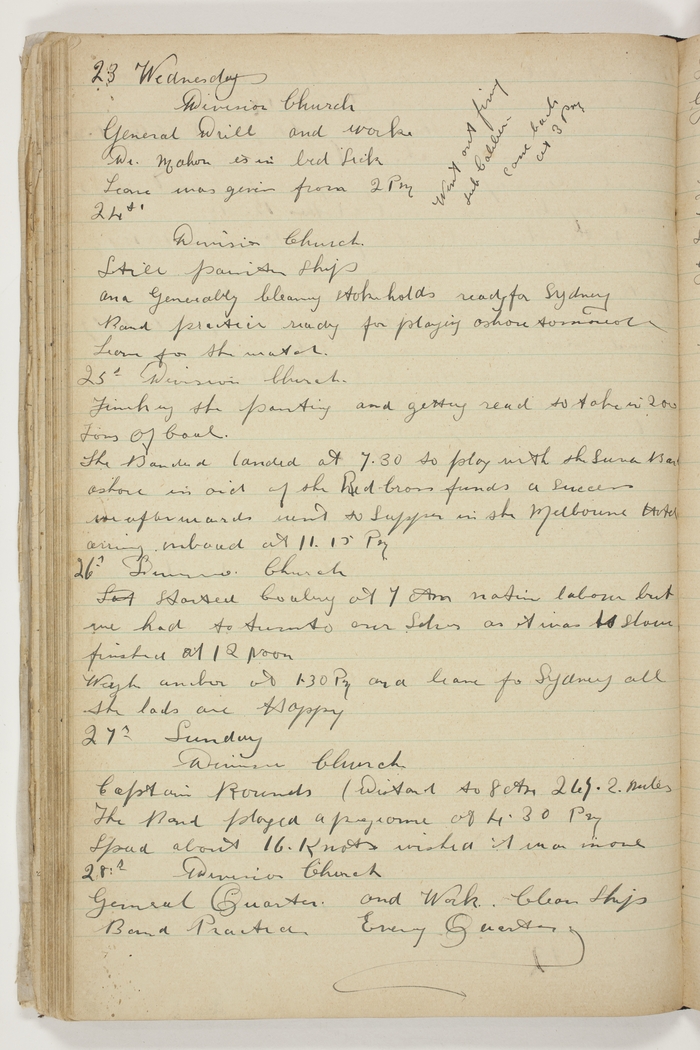 23 Wednesday
Division Church
General Drill and work
Dr. Mahon is in bed Sick
Leave was given from 2 Pm
Went out firing
sub Caliber.
came back
at 3 Pm
24th
Division Church.
Still painten Ships
and Generally cleaning stokeholds ready for Sydney
Band practice ready for playing ashore tomorrow
Leave for the watch.
25th Division Church.
Finishing the painting and getting read to take in 200
Tons of Coal.
The Banded landed at 7.30 to play with the Suva Band
ashore in aid of the Red Cross funds a success
we afterwards went to Supper in the Melbourne Hotel
onboad at 11.15 Pm
26th Division. Church
Started Coaling at 7 Am native labour but
we had to turnto our Selves as it was to slow
finished at 12 noon
Weigh anchor at 1.30 Pm and leave fo Sydney all
the lads are Happy
27th Sunday
Division Church
Captain Rounds (Distant to 8 Am 249.2. miles
The Band played a programe at 4.30 Pm
Speed about 16. Knots wished it was more
28th Division Church
General Quarters. and Work. Clean Ships
Band Practice Evening Quarters